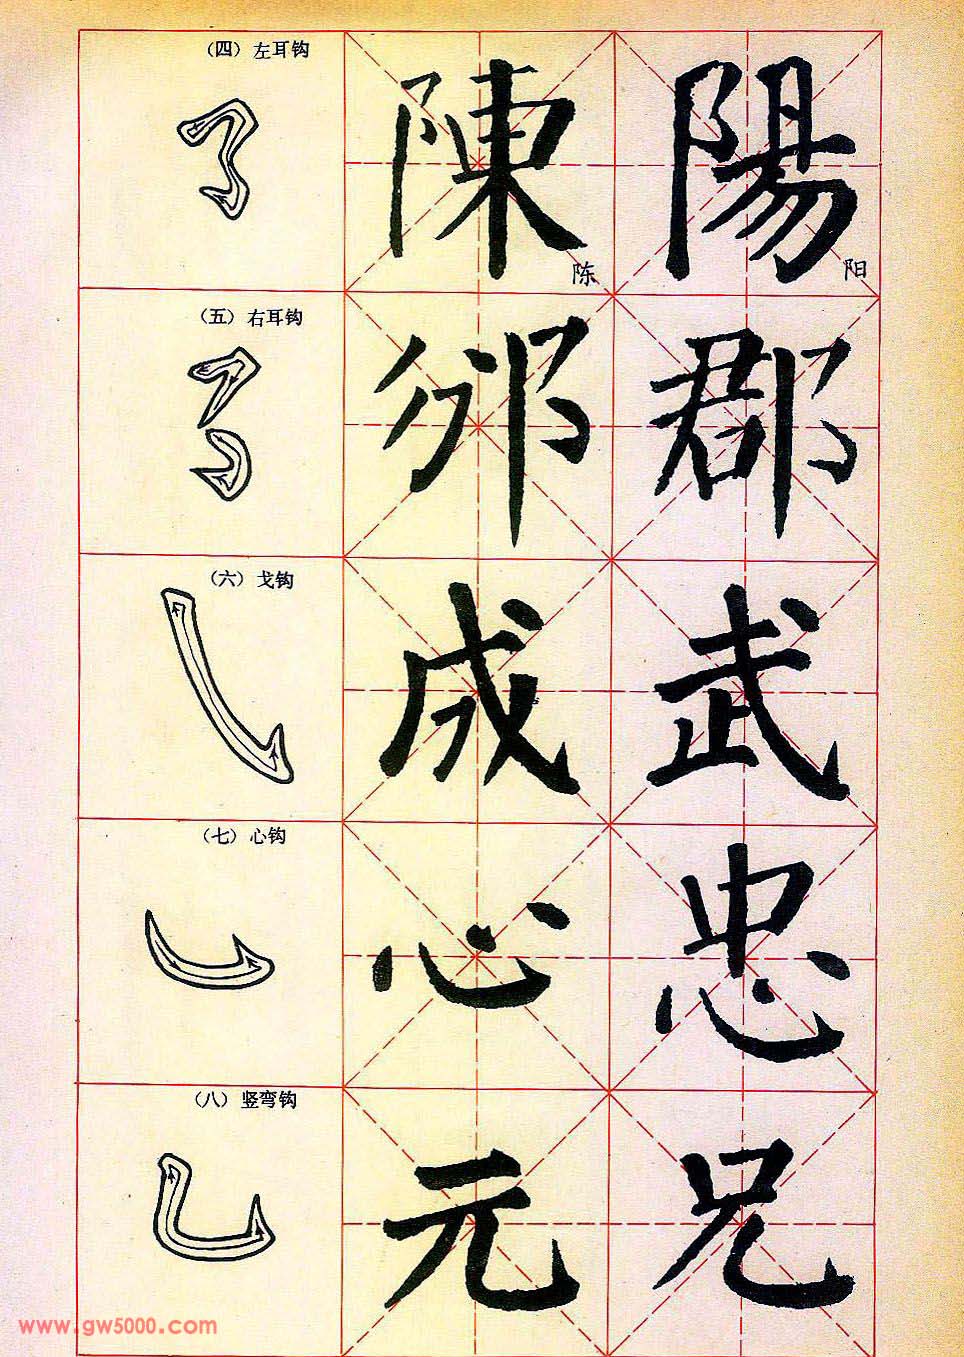 （四）左耳钩
陳 陈
陽 阳
（五）右耳钩
邠
郡
（六）戈钩
成
武
（七）心钩
心
忠
（八）竖弯钩
元
兄
www.gw5000.com